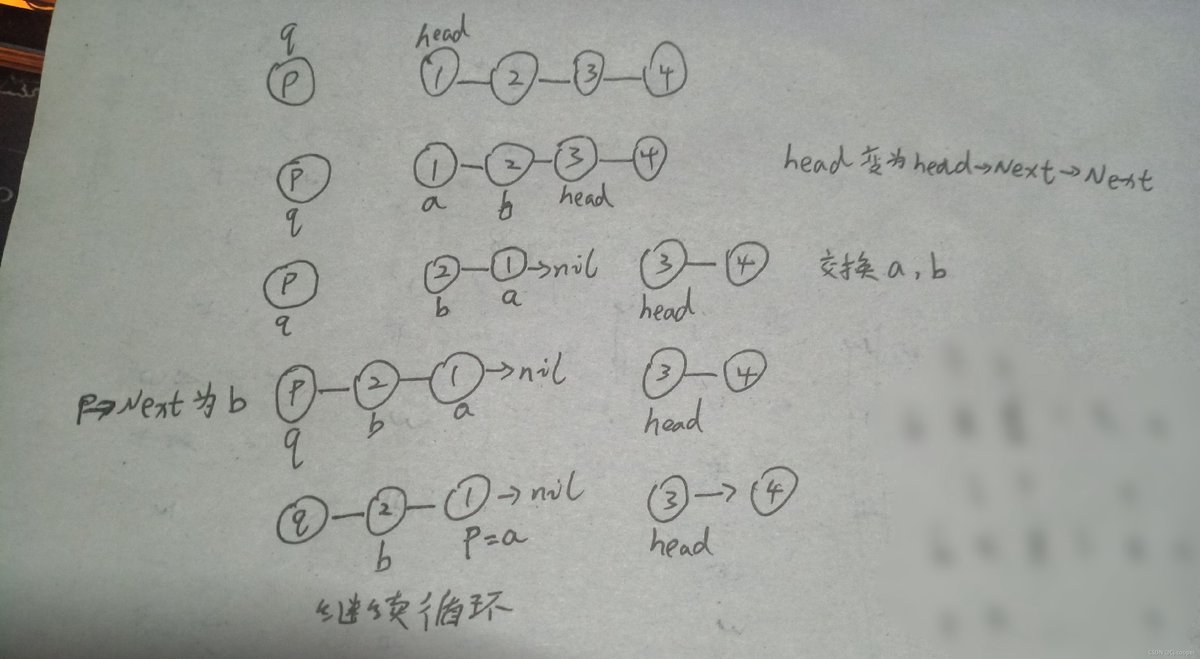 q head
P 1 2 3 4
P 1 2 3 4 head 变为 head→Next→Next
q a b head
P 2 1 →nil 3 4 交换 a, b
q b a head
P→Next 为 b P 2 1 →nil 3 4
q b a head
q 2 1 →nil 3 → 4
b P=a head
继续循环